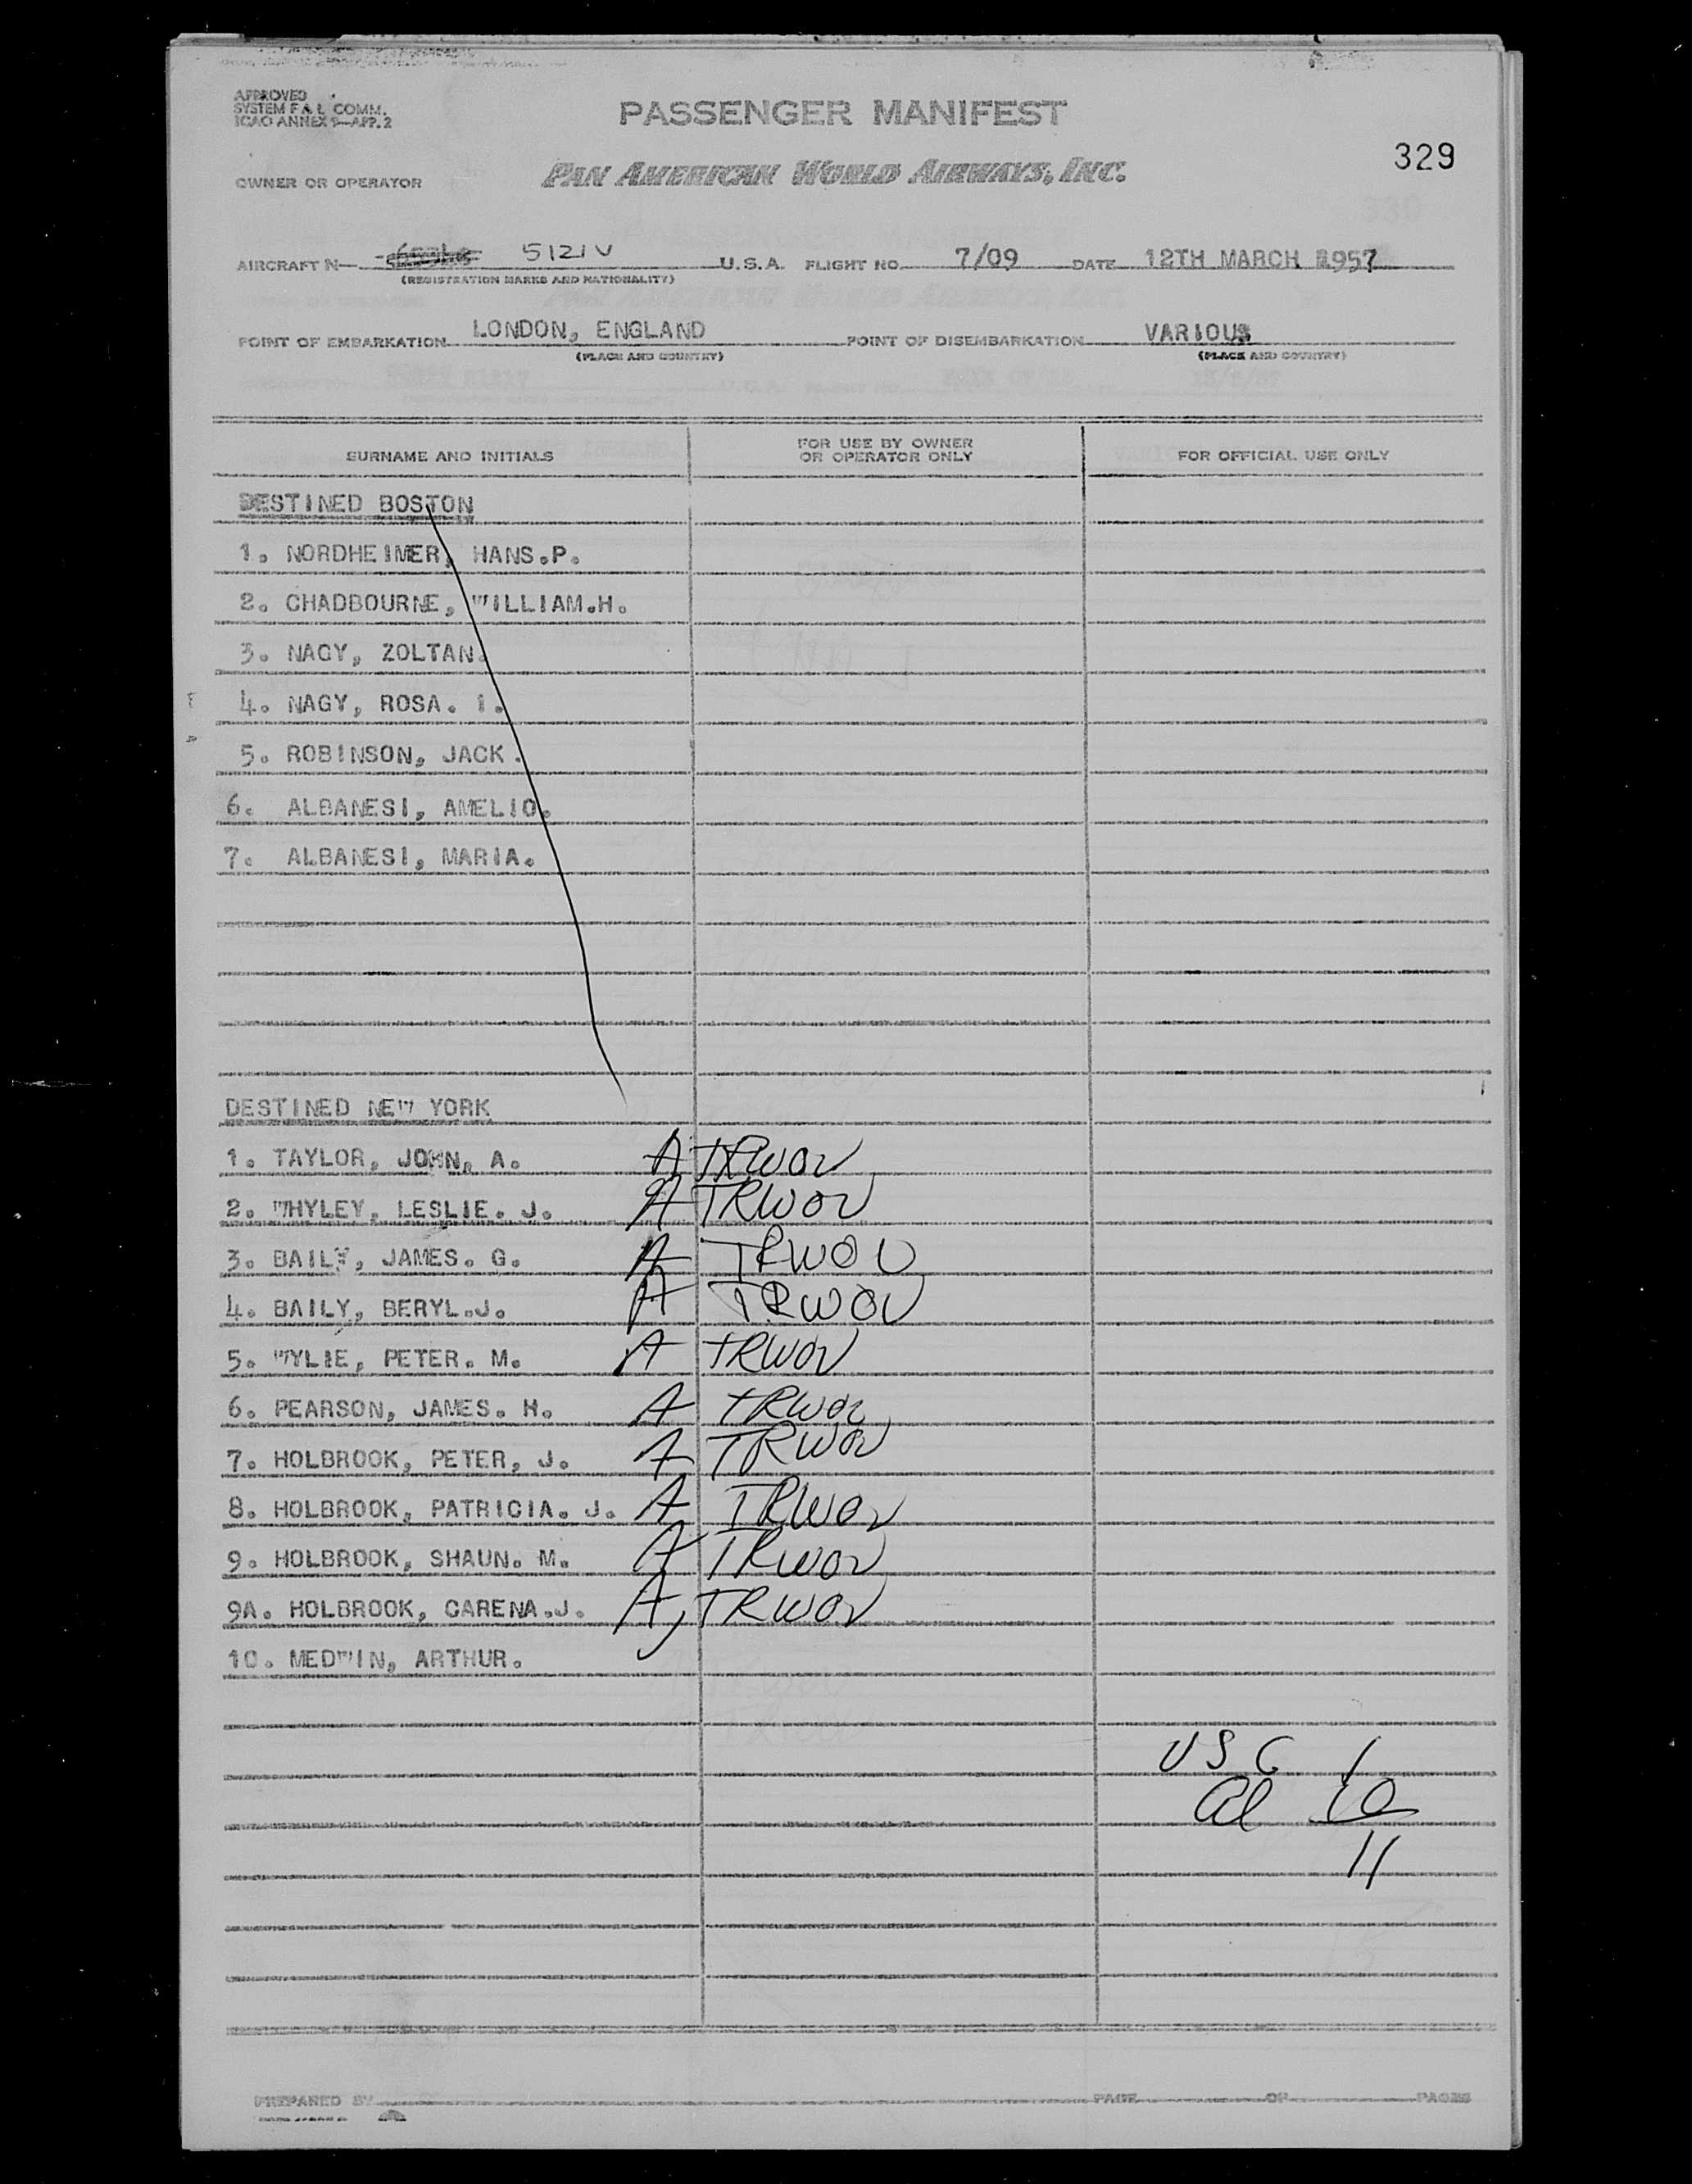 APPROVED
SYSTEM F A L COMM.
ICAO ANNEX 9—APP. 2
PASSENGER MANIFEST
329
OWNER OR OPERATOR PAN AMERICAN WORLD AIRWAYS, INC.
AIRCRAFT N— 5121V U.S.A. FLIGHT NO. 7/09 DATE 12TH MARCH 1957
(REGISTRATION MARKS AND NATIONALITY)
POINT OF EMBARKATION LONDON, ENGLAND POINT OF DISEMBARKATION VARIOUS
(PLACE AND COUNTRY) (PLACE AND COUNTRY)
SURNAME AND INITIALS FOR USE BY OWNER OR OPERATOR ONLY FOR OFFICIAL USE ONLY
DESTINED BOSTON
1. NORDHEIMER, HANS.P.
2. CHADBOURNE, WILLIAM.H.
3. NAGY, ZOLTAN.
4. NAGY, ROSA. I.
5. ROBINSON, JACK.
6. ALBANESI, AMELIO.
7. ALBANESI, MARIA.
DESTINED NEW YORK
1. TAYLOR, JOHN, A. A TRWOV
2. WHYLEY, LESLIE. J. A TRWOV
3. BAILY, JAMES. G. A TRWOV
4. BAILY, BERYL.J. A TRWOV
5. WYLIE, PETER. M. A TRWOV
6. PEARSON, JAMES. H. A TRWOV
7. HOLBROOK, PETER, J. A TRWOV
8. HOLBROOK, PATRICIA. J. A TRWOV
9. HOLBROOK, SHAUN. M. A TRWOV
9A. HOLBROOK, CARENA.J. A TRWOV
10. MEDWIN, ARTHUR.
USC 1
al 10
11
PREPARED BY PAGE OF PAGES